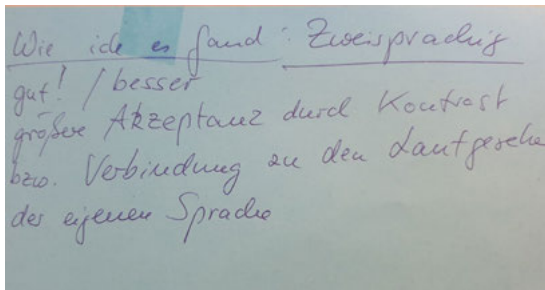 Wie ich es fand: Zweisprachig
gut! / besser
größere Akzeptanz durch Kontrast
bzw. Verbindung zu den Lautgesche
der eigenen Sprache